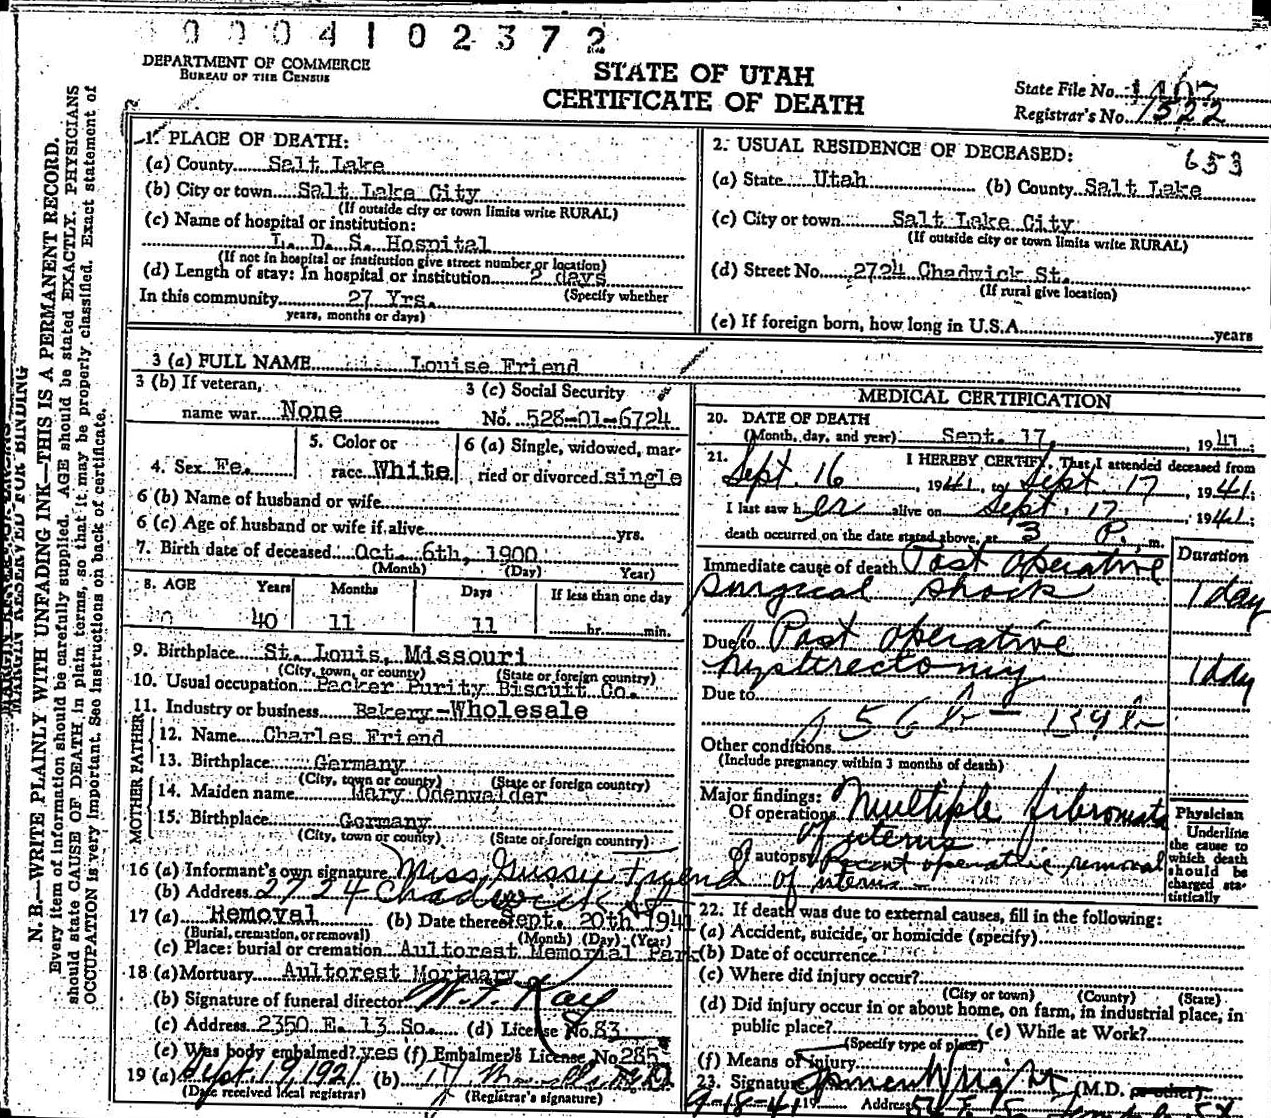 0004102372
DEPARTMENT OF COMMERCE
BUREAU OF THE CENSUS
STATE OF UTAH
CERTIFICATE OF DEATH
State File No.
Registrar's No. 1522
653
N. B.—WRITE PLAINLY WITH UNFADING INK—THIS IS A PERMANENT RECORD.
Every item of information should be carefully supplied. AGE should be stated EXACTLY. PHYSICIANS
should state CAUSE OF DEATH in plain terms, so that it may be properly classified. Exact statement of
OCCUPATION is very important. See instructions on back of certificate.
MARGIN RESERVED FOR BINDING
1. PLACE OF DEATH:
(a) County Salt Lake
(b) City or town Salt Lake City
(If outside city or town limits write RURAL)
(c) Name of hospital or institution:
L. D. S. Hospital
(If not in hospital or institution give street number or location)
(d) Length of stay: In hospital or institution 2 days
(Specify whether
In this community 27 Yrs.
years, months or days)
2. USUAL RESIDENCE OF DECEASED:
(a) State Utah (b) County Salt Lake
(c) City or town Salt Lake City
(If outside city or town limits write RURAL)
(d) Street No. 2724 Chadwick St.
(If rural give location)
(e) If foreign born, how long in U.S.A. years
3 (a) FULL NAME Louise Friend
3 (b) If veteran,
name war None
3 (c) Social Security
No. 528-01-6724
4. Sex Fe.
5. Color or
race White
6 (a) Single, widowed, mar-
ried or divorced single
6 (b) Name of husband or wife
6 (c) Age of husband or wife if alive yrs.
7. Birth date of deceased Oct. 6th, 1900
(Month) (Day) Year)
8. AGE Years Months Days If less than one day
40 11 11 hr. min.
9. Birthplace St. Louis, Missouri
(City, town, or county) (State or foreign country)
10. Usual occupation Packer Purity Biscuit Co.
11. Industry or business Bakery-Wholesale
MOTHER FATHER
12. Name Charles Friend
13. Birthplace Germany
(City, town or county) (State or foreign country)
14. Maiden name Mary Odenwalder
15. Birthplace Germany
(City, town or county) (State or foreign country)
16 (a) Informant's own signature Miss Gussy Friend
(b) Address 2724 Chadwick St
17 (a) Removal (b) Date thereof Sept. 20th 1941
(Burial, cremation, or removal) (Month) (Day) (Year)
(c) Place: burial or cremation Aultorest Memorial Park
18 (a) Mortuary Aultorest Mortuary
(b) Signature of funeral director W. T. Kay
(c) Address 2350 E. 13 So. (d) License No. 83
(e) Was body embalmed? yes (f) Embalmer's License No. 285
19 (a) Sept 19, 1921 (b)
(Date received local registrar) (Registrar's signature)
MEDICAL CERTIFICATION
20. DATE OF DEATH
(Month, day, and year) Sept. 17, 1941.
21. I HEREBY CERTIFY, That I attended deceased from
Sept. 16, 1941, to Sept. 17, 1941;
I last saw her alive on Sept. 17, 1941;
death occurred on the date stated above, at 3 P. m.
Duration
Immediate cause of death Post operative
surgical shock 1 day
Due to Post operative
hysterectomy 1 day
Due to
156 lb — 139 lb
Other conditions
(Include pregnancy within 3 months of death)
Major findings:
Of operations Multiple fibromata
of uterus
Of autopsy Recent operative removal
of uterus —
Physician
Underline
the cause to
which death
should be
charged sta-
tistically
22. If death was due to external causes, fill in the following:
(a) Accident, suicide, or homicide (specify)
(b) Date of occurrence
(c) Where did injury occur?
(City or town) (County) (State)
(d) Did injury occur in or about home, on farm, in industrial place, in
public place? (e) While at Work?
(Specify type of place)
(f) Means of Injury
23. Signature Wright (M.D. or other)
9-18-41 19 Address